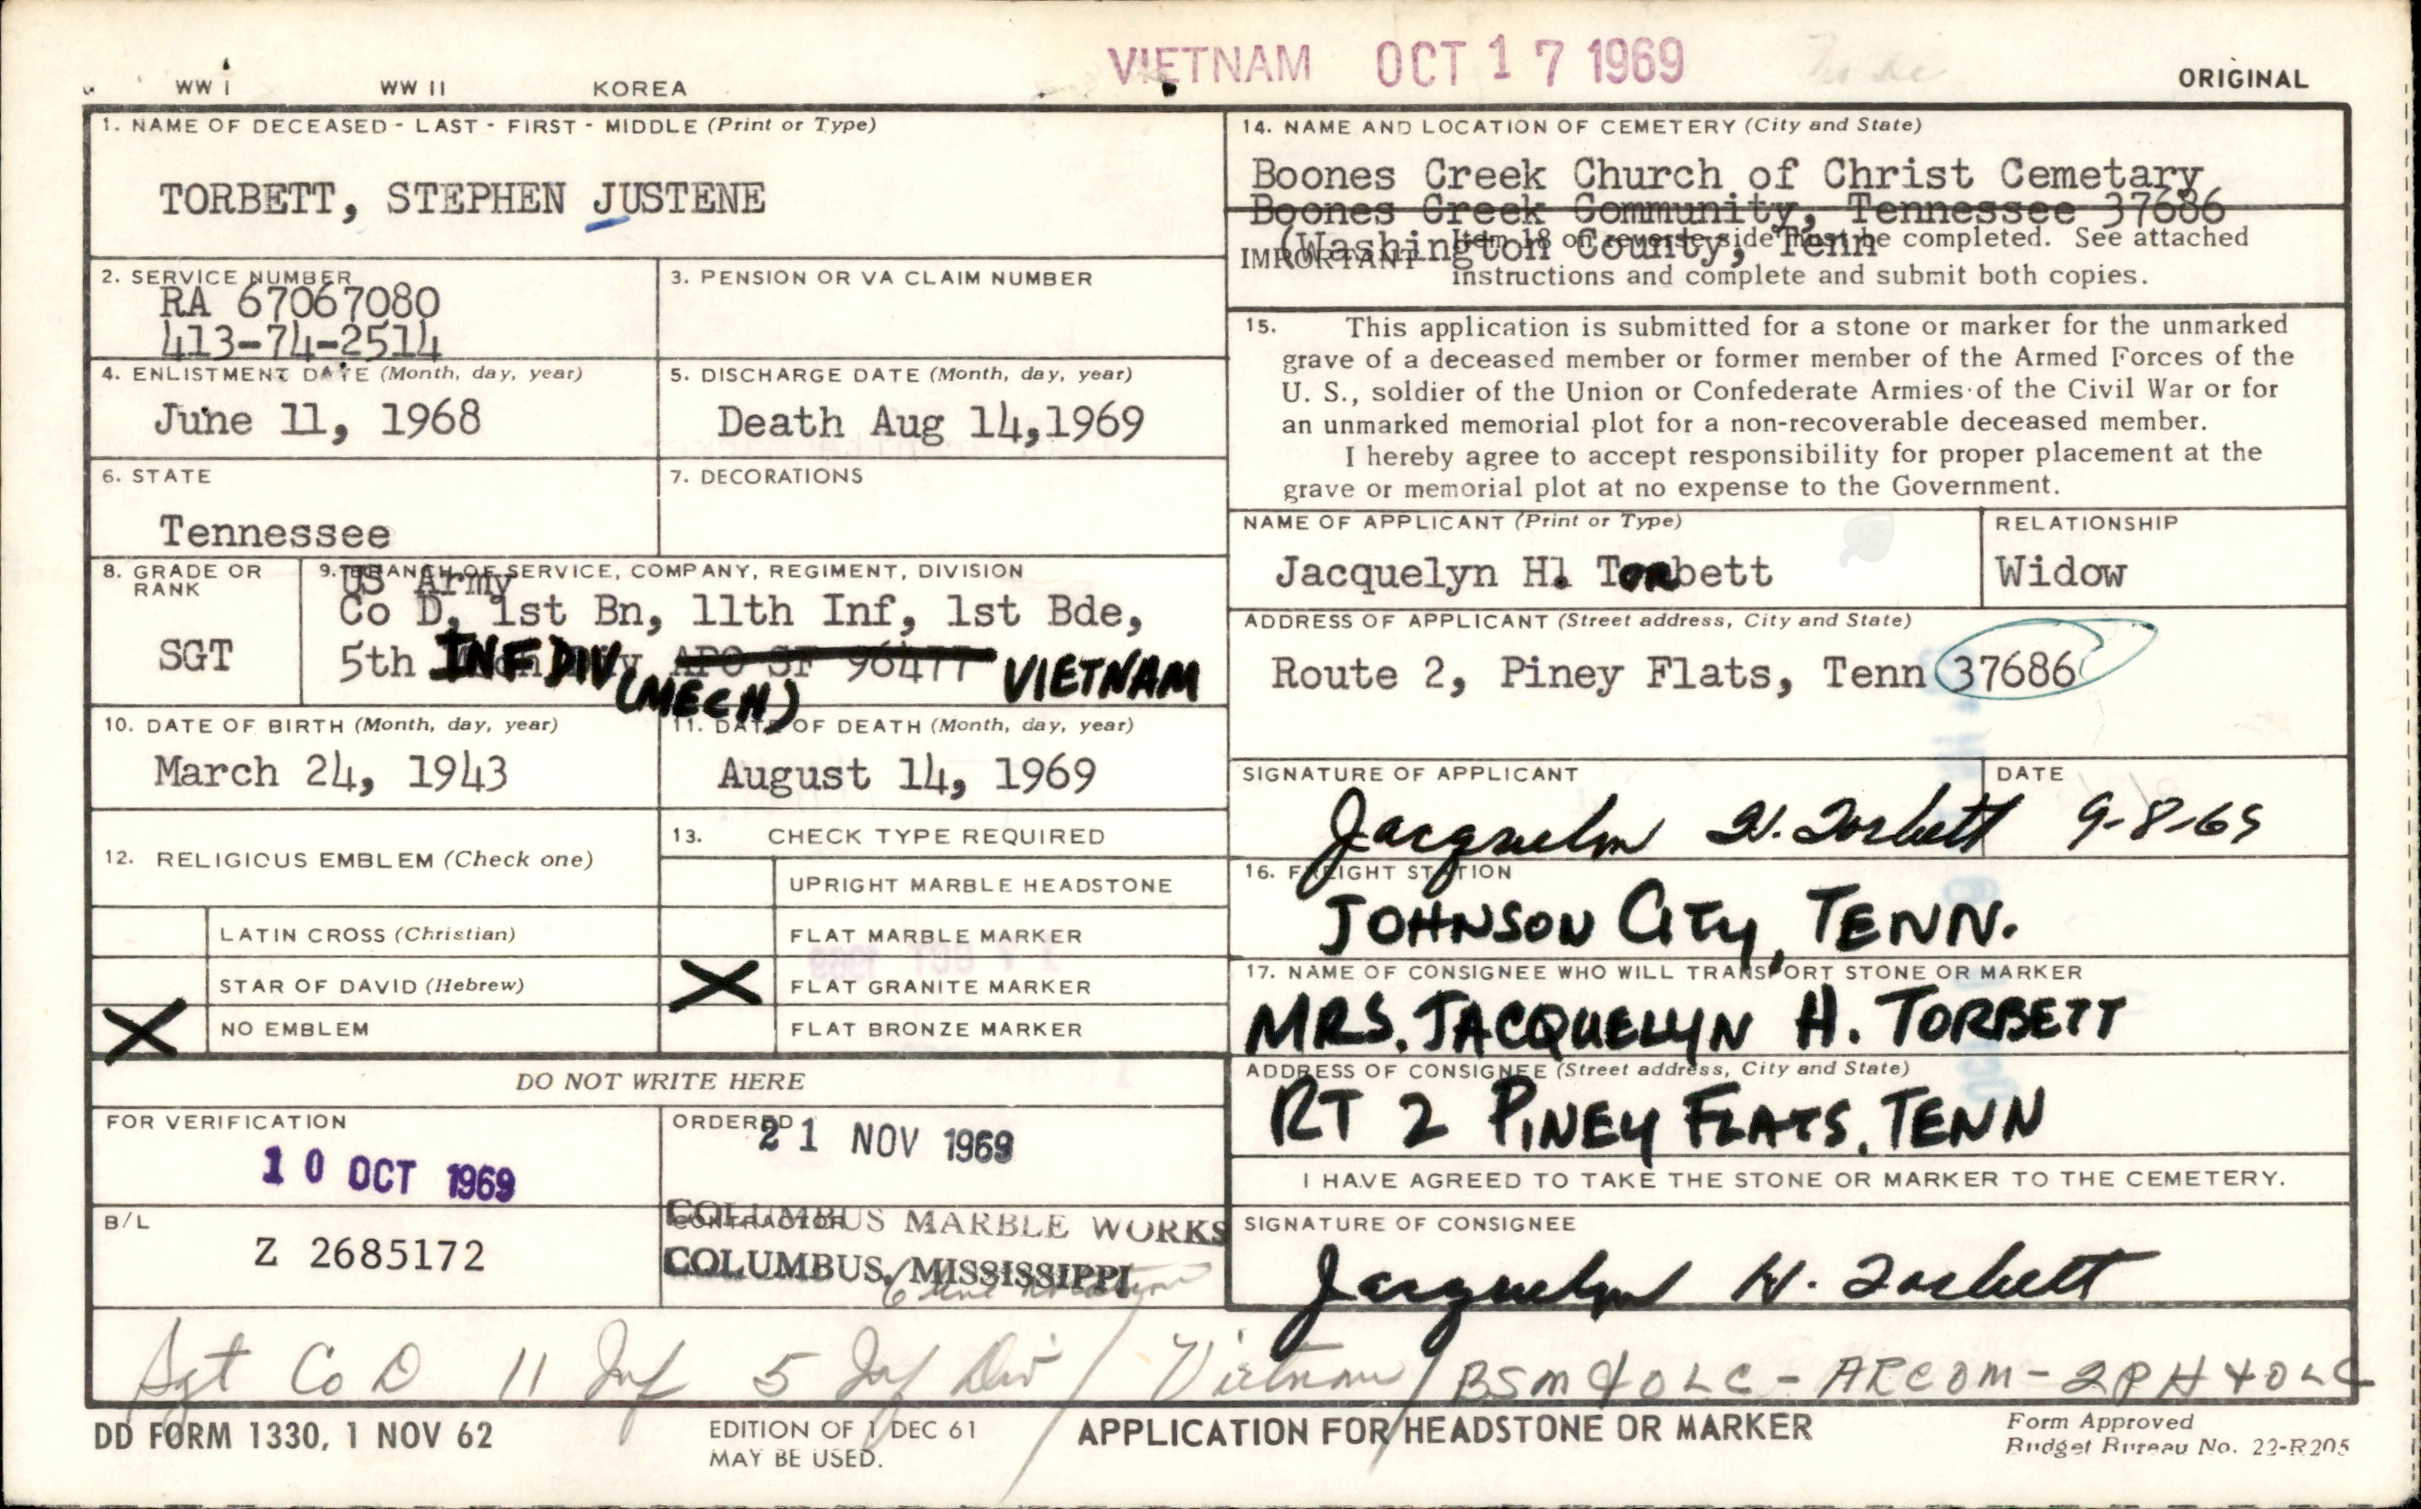 VIETNAM OCT 17 1969
WW I WW II KOREA ORIGINAL
1. NAME OF DECEASED - LAST - FIRST - MIDDLE (Print or Type)
TORBETT, STEPHEN JUSTENE
2. SERVICE NUMBER
RA 67067080
413-74-2514
3. PENSION OR VA CLAIM NUMBER
4. ENLISTMENT DATE (Month, day, year)
June 11, 1968
5. DISCHARGE DATE (Month, day, year)
Death Aug 14,1969
6. STATE
Tennessee
7. DECORATIONS
8. GRADE OR RANK
SGT
9. BRANCH OF SERVICE, COMPANY, REGIMENT, DIVISION
US Army
Co D, 1st Bn, 11th Inf, 1st Bde,
5th INF DIV (MECH) APO SF 96477 VIETNAM
10. DATE OF BIRTH (Month, day, year)
March 24, 1943
11. DATE OF DEATH (Month, day, year)
August 14, 1969
12. RELIGIOUS EMBLEM (Check one)
LATIN CROSS (Christian)
STAR OF DAVID (Hebrew)
X NO EMBLEM
13. CHECK TYPE REQUIRED
UPRIGHT MARBLE HEADSTONE
FLAT MARBLE MARKER
X FLAT GRANITE MARKER
FLAT BRONZE MARKER
DO NOT WRITE HERE
FOR VERIFICATION
10 OCT 1969
ORDERED
21 NOV 1969
B/L
Z 2685172
CONTRACTOR
COLUMBUS MARBLE WORKS
COLUMBUS, MISSISSIPPI
14. NAME AND LOCATION OF CEMETERY (City and State)
Boones Creek Church of Christ Cemetary
Boones Creek Community, Tennessee 37686
(Washington County, Tenn
IMPORTANT Item 18 on reverse side must be completed. See attached
instructions and complete and submit both copies.
15. This application is submitted for a stone or marker for the unmarked
grave of a deceased member or former member of the Armed Forces of the
U. S., soldier of the Union or Confederate Armies of the Civil War or for
an unmarked memorial plot for a non-recoverable deceased member.
I hereby agree to accept responsibility for proper placement at the
grave or memorial plot at no expense to the Government.
NAME OF APPLICANT (Print or Type)
Jacquelyn H. Torbett
RELATIONSHIP
Widow
ADDRESS OF APPLICANT (Street address, City and State)
Route 2, Piney Flats, Tenn 37686
SIGNATURE OF APPLICANT
Jacquelyn H. Torbett
DATE
9-8-69
16. FREIGHT STATION
JOHNSON CITY, TENN.
17. NAME OF CONSIGNEE WHO WILL TRANSPORT STONE OR MARKER
MRS. JACQUELYN H. TORBETT
ADDRESS OF CONSIGNEE (Street address, City and State)
RT 2 PINEY FLATS, TENN
I HAVE AGREED TO TAKE THE STONE OR MARKER TO THE CEMETERY.
SIGNATURE OF CONSIGNEE
Jacquelyn H. Torbett
Sgt Co D 11 Inf 5 Inf Div / Vietnam / BSM & OLC - ARCOM - 2 PH & OLC
DD FORM 1330, 1 NOV 62
EDITION OF 1 DEC 61
MAY BE USED.
APPLICATION FOR HEADSTONE OR MARKER
Form Approved
Budget Bureau No. 22-R205